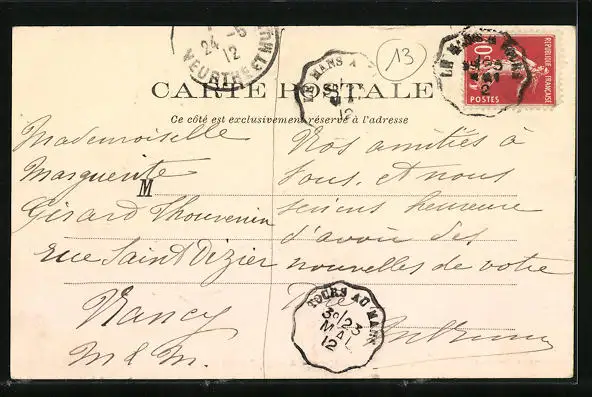 24 -5
12
MEURTHE ET MOS
LE MANS A
12
13
LE MANS A TOURS
12
REPUBLIQUE FRANÇAISE
10
POSTES
CARTE POSTALE
Ce côté est exclusivement réservé à l'adresse
M
Mademoiselle
Marguerite
Girard Thouvenin
rue Saint Dizier
Nancy
M & M.
Nos amitiés à
tous, et nous
serions heureuse
d'avoir des
nouvelles de votre
TOURS AU MANS
3º/23
MAI
12